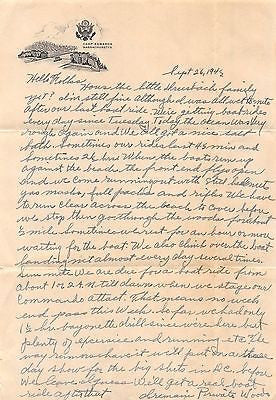 CAMP EDWARDS
MASSACHUSETTS
Sept 26, 1943
Hello Folks:
Hows the little Streets family
yet? I'm still fine Although I was
after our last boat ride. We're getting boat rides
every day since Tuesday. Today the ocean was very
rough again and We all got a nice salt
bath. Sometimes our rides last 45 min and
sometimes 2½ hrs. When the boats run up
against the beach, the front end flys open
and we come running out with steel helmets
guns, full packs and rifles. We have to
run clear across the beach to cover. Before
we stop then go through the woods for about
½ mile. Sometimes we rest for an hour or more
waiting for the boat. We also climb over the boat
landing net almost every day several times.
Sun nite We are due for a boat ride from
about 1 or 2 A.M. till dawn when we stage our
Commando attack. That means no week
end pass this Week. So far we had only
1½ hrs bayonette drill since were here but
plenty of exercise and running etc. the
way rumors have it will put on a three
day show for the big shots in D.C. before
We leave. I guess We'll get a real boat
ride after that I remain Private Woods